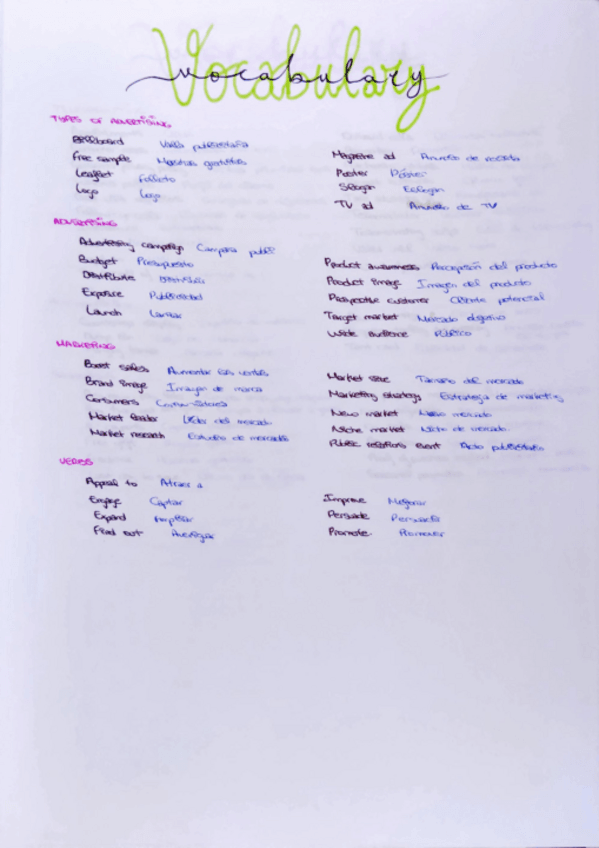 Vocabulary
vocabulary
TYPES OF ADVERTISING
Billboard Valla publicitaria
Free sample Muestras gratuitas
Leaflet Folleto
Logo Logo
Magazine ad Anuncio de revista
Poster Póster
Slogan Eslogan
TV ad Anuncio de TV
ADVERTISING
Advertising campaign Campaña publi
Budget Presupuesto
Distribute Distribuir
Exposure Publicidad
Launch Lanzar
Product awareness Percepción del producto
Product image Imagen del producto
Prospective customer Cliente potencial
Target market Mercado objetivo
Wide audience Público
MARKETING
Boost sales Aumentar las ventas
Brand image Imagen de marca
Consumers Consumidores
Market leader Líder del mercado
Market research Estudio de mercado
Market size Tamaño del mercado
Marketing strategy Estrategia de marketing
New market Nuevo mercado
Niche market Nicho de mercado
Public relations event Acto publicitario
VERBS
Appeal to Atraer a
Engage Captar
Expand Ampliar
Find out Averiguar
Improve Mejorar
Persuade Persuadir
Promote Promover